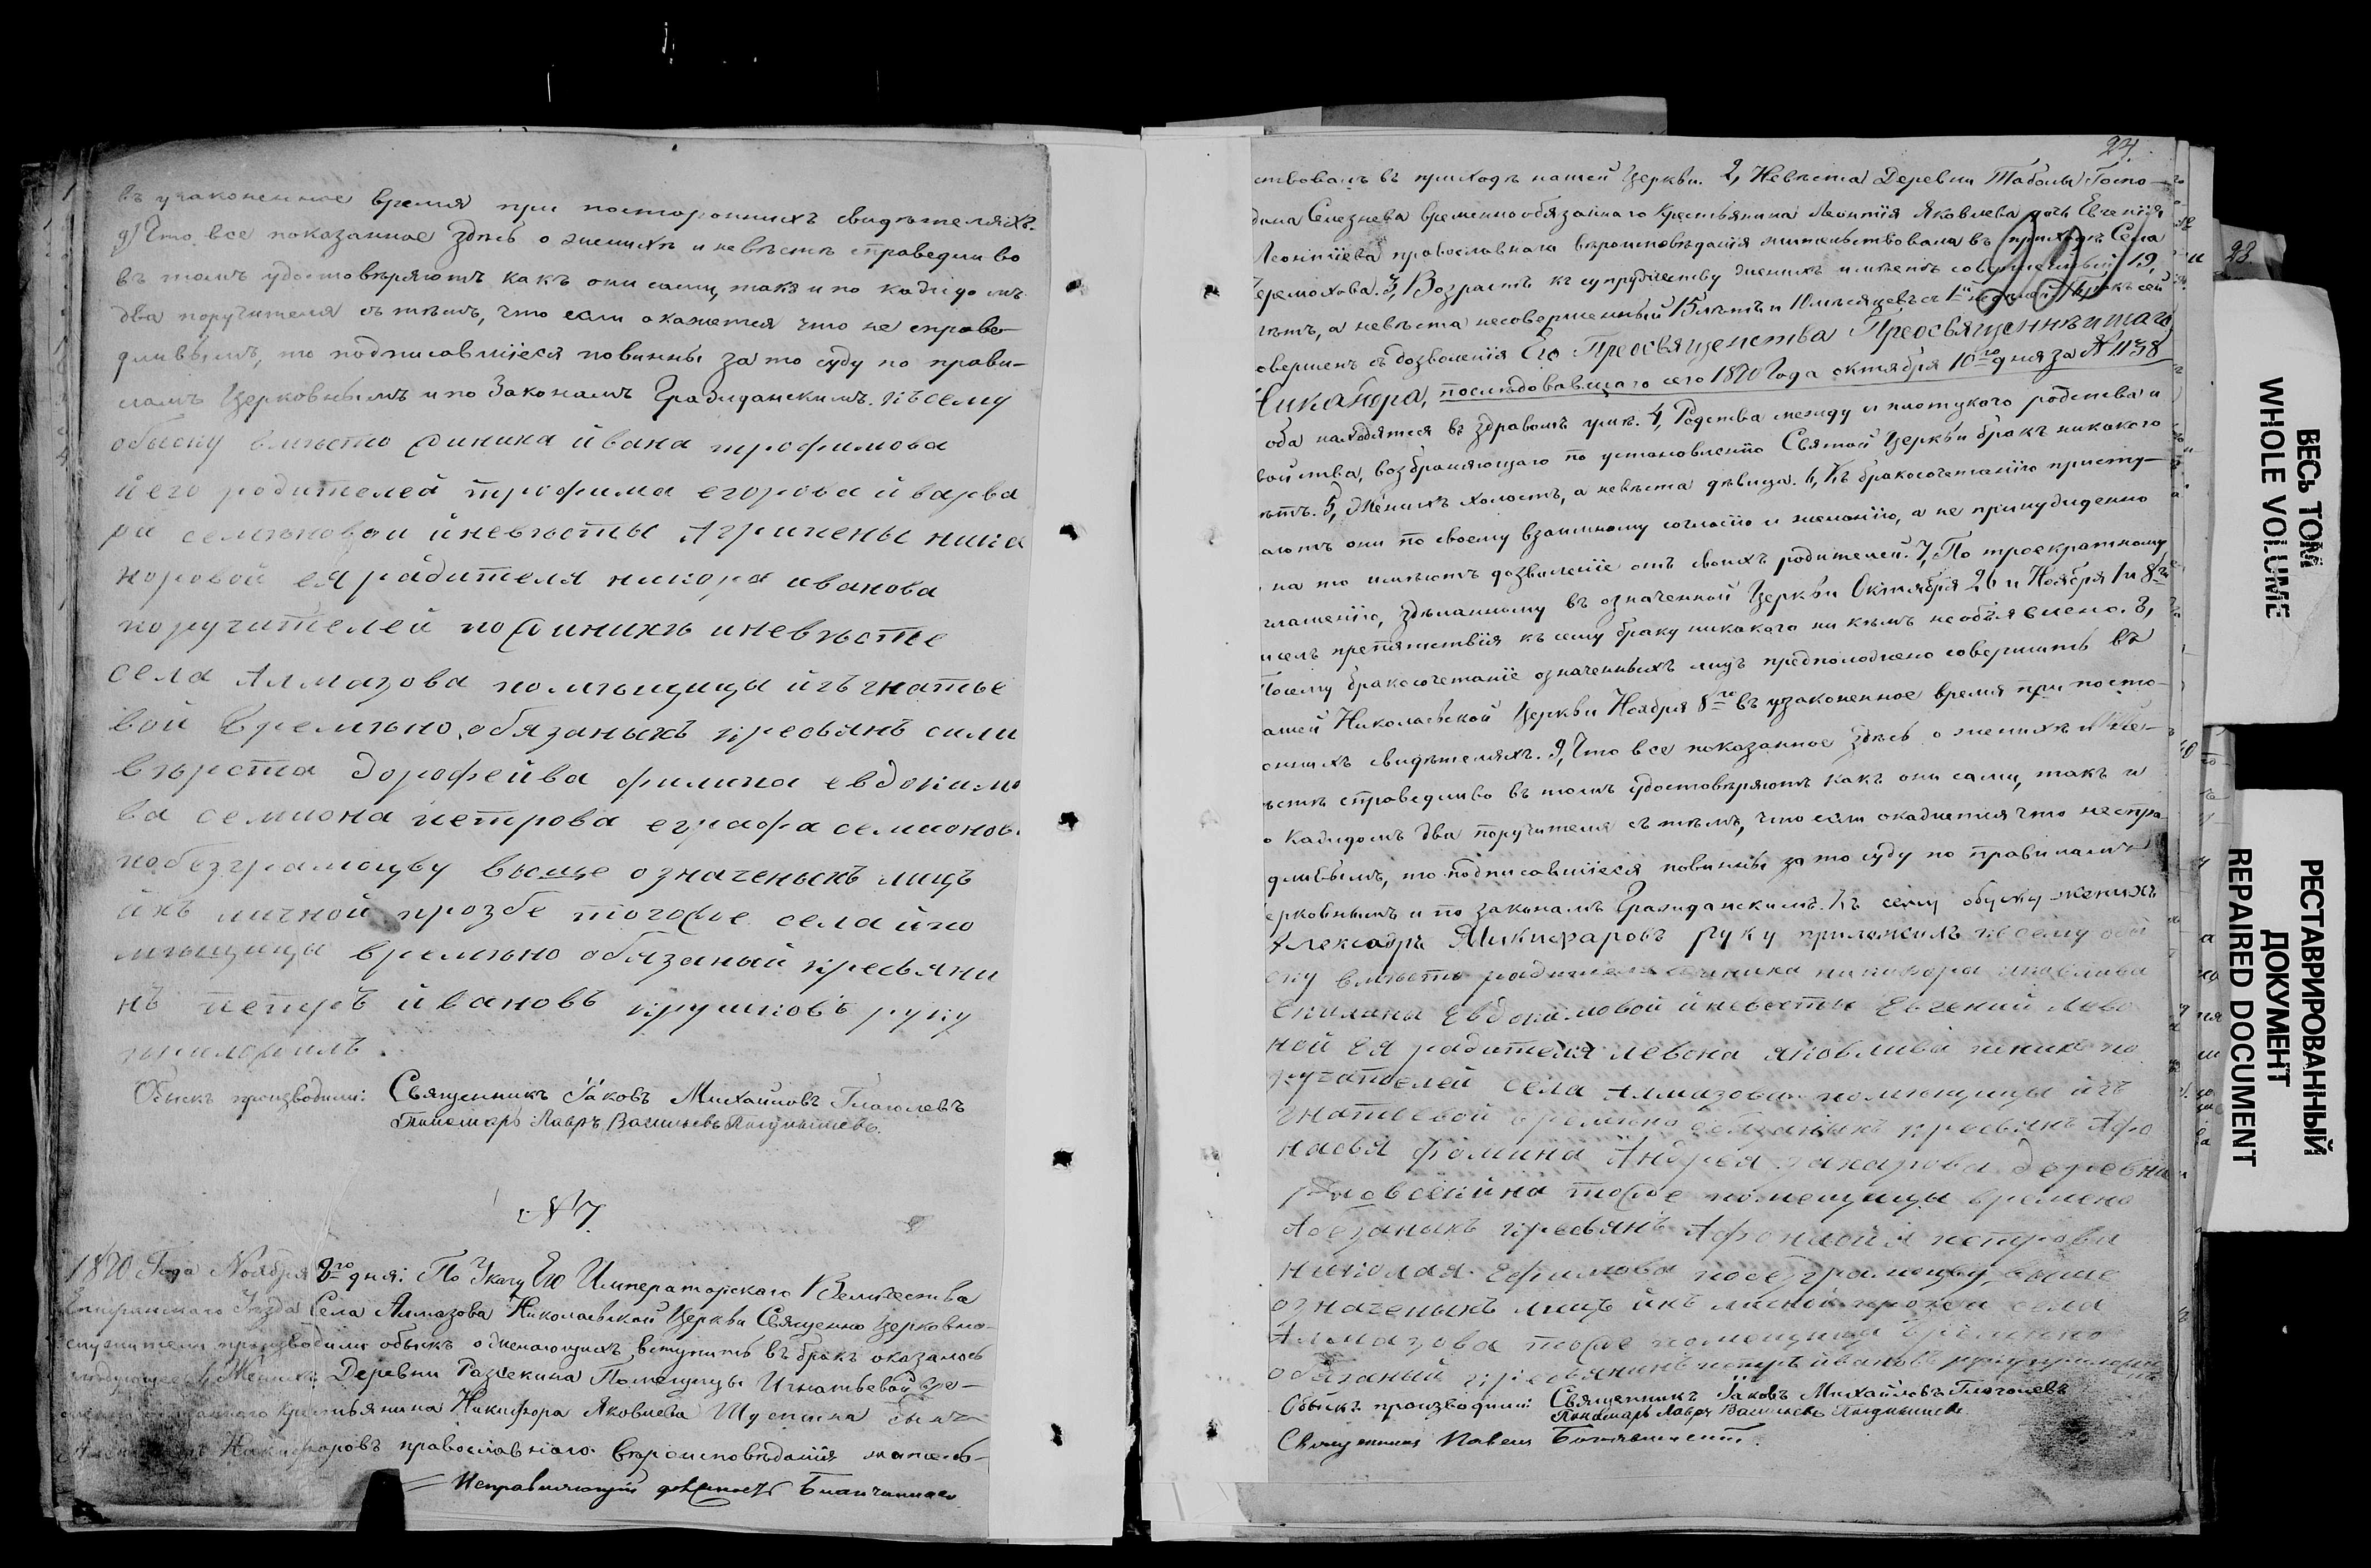 въ узаконенное время при постороннихъ свидѣтеляхъ.
9) Что все показанное здѣсь о женихѣ и невѣстѣ справедливо
въ томъ удостовѣряютъ какъ они сами, такъ и по каждомъ
два поручителя съ тѣмъ, что если окажется что не справе-
дливымъ, то подписавшіеся повинны за то суду по прави-
ламъ Церковнымъ и по Законамъ Гражданскимъ. Къ сему
обыску вмѣсто жиниха ивана трофимова
и его родителей трофима егорова и варва
ры семѣновой и невѣсты Агрипены ника
норовой ея радителя никора иванова
поручителей по жинихѣ и невѣсте
села Алмазова помѣщицы игънатье
вой времѣно обязаныхъ кресьянъ сили
вѣрста дорофейва филипа евдокимо
ва семиона петрова еграфа семионов
побезграмоцву выше означеныхъ лицъ
ихъ личной прозбе тогоже села и по
мѣщицы времѣно обязаный кресьяни
нъ петръ ивановъ крушковъ руку
приложилъ.
Обыскъ производили: Священникъ Іаковъ Михайловъ Глаголевъ
Пономарь Лавръ Васильевъ
№ 7.
1870 Года Ноября 8го дня: По Указу Его Императорскаго Величества
Епифанскаго Уѣзда Села Алмазова Николаевской Церкви Священно церковно-
служители производили обыскъ о желающихъ вступить въ бракъ оказалось
слѣдующее: 1, Женихъ Деревни Помещицы Игнатьевой вре-
менно обязаннаго крестьянина Никифора Яковлева сынъ
Александръ Никифоровъ православнаго вѣроисповѣданія жительст-
Исправляющій должность Благочиннаго
24.
28
ствовалъ въ приходѣ нашей Церкви. 2, Невѣста Деревни Таболы Госпо-
дина Селезнева временнообязаннаго Крестьянина Леонтія Яковлева дочь Евгенія
Леонтіева православнаго вѣроисповѣданія жительствовала въ приходѣ Села
Черемохова. 3, Возрастъ къ супружеству женихъ имѣетъ совершенный 19,
лѣтъ, а невѣста несовершенный 15 лѣтъ и 11 мѣсяцевъ бракъ сей
совершенъ съ дозволенія Его Преосвященства Преосвященнѣйшаго
Никандра, послѣдовавшаго сего 1870 Года октября 10го дня за № 1138
оба находятся въ здравомъ умѣ. 4, Родства между и плотскаго родства и
свойства, возбраняющаго по установленію Святой Церкви бракъ никакого
нѣтъ. 5, Женихъ холостъ, а невѣста дѣвица. 6, Къ бракосочетанію присту-
паютъ они по своему взаимному согласію и желанію, а не принужденно
на то имѣютъ дозволеніе отъ своихъ родителей. 7, По троекратному
оглашенію, здѣланному въ означенной Церкви Октября 26 и Ноября 1 и 8
чиселъ препятствія къ сему браку никакого ни кѣмъ не объявлено. 8,
Посему бракосочетаніе означенныхъ лицъ предположено совершить въ
нашей Николаевской Церкви Ноября 8го въ узаконенное время при посто-
роннихъ свидѣтеляхъ. 9, Что все показанное здѣсь о женихѣ и не-
вѣстѣ справедливо въ томъ удостовѣряютъ какъ они сами, такъ и
по каждомъ два поручителя съ тѣмъ, что если окажется что неспра-
ведливымъ, то подписавшіеся повинны за то суду по правиламъ
Церковнымъ и по законамъ Гражданскимъ. Къ сему обыску женихъ
Александръ Микифаровъ руку приложилъ къ сему обы
ску вмѣсто радителя жиниха никифора яковлива
Евдокимовой и невѣсты Евгений лево
ной ея радителя левона яковлива
ручателей села Алмазова помѣщицы игъ
натьевой времѣно обязаныхъ кресьянъ Афо
насья Фомина Андрея захарова деревни
тоже помещицы времено
абезаныхъ кресьянъ Афонасия петрова
николая Ефимова побезграмоцву выше
означеныхъ лицъ ихъ личной прозби села
Алмазова тоже помещицы времѣно
обезаный кресьянинъ петръ ивановъ руку приложилъ
Обыскъ производили: Священникъ Іаковъ Михайловъ Глаголевъ
Пономарь Лавръ Васильевъ
Священникъ Павелъ
ВЕСЬ ТОМ
WHOLE VOLUME
РЕСТАВРИРОВАННЫЙ
ДОКУМЕНТ
REPAIRED DOCUMENT